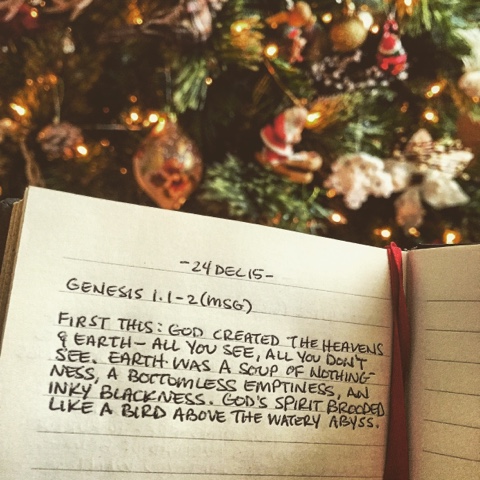 -24DEC15-
GENESIS 1.1-2(MSG)
FIRST THIS: GOD CREATED THE HEAVENS
& EARTH- ALL YOU SEE, ALL YOU DON'T
SEE. EARTH WAS A SOUP OF NOTHING-
NESS, A BOTTOMLESS EMPTINESS, AN
INKY BLACKNESS. GOD'S SPIRIT BROODED
LIKE A BIRD ABOVE THE WATERY ABYSS.